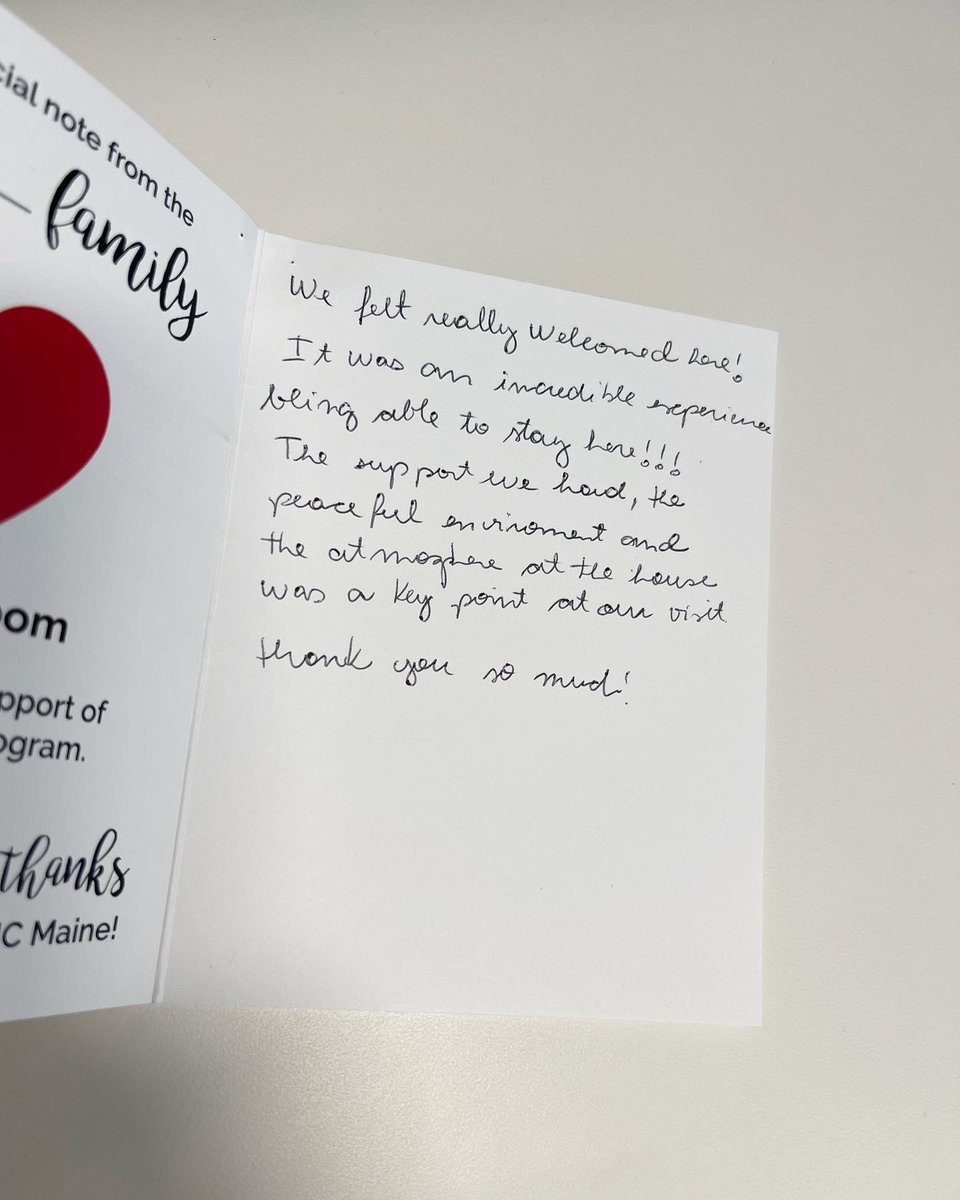 cial note from the
family
oom
pport of
ogram.
thanks
C Maine!
We felt really welcomed here!
It was an incredible experience
being able to stay here!!!
The support we had, the
peaceful enviroment and
the atmosphere at the house
was a key point at our visit
thank you so much!